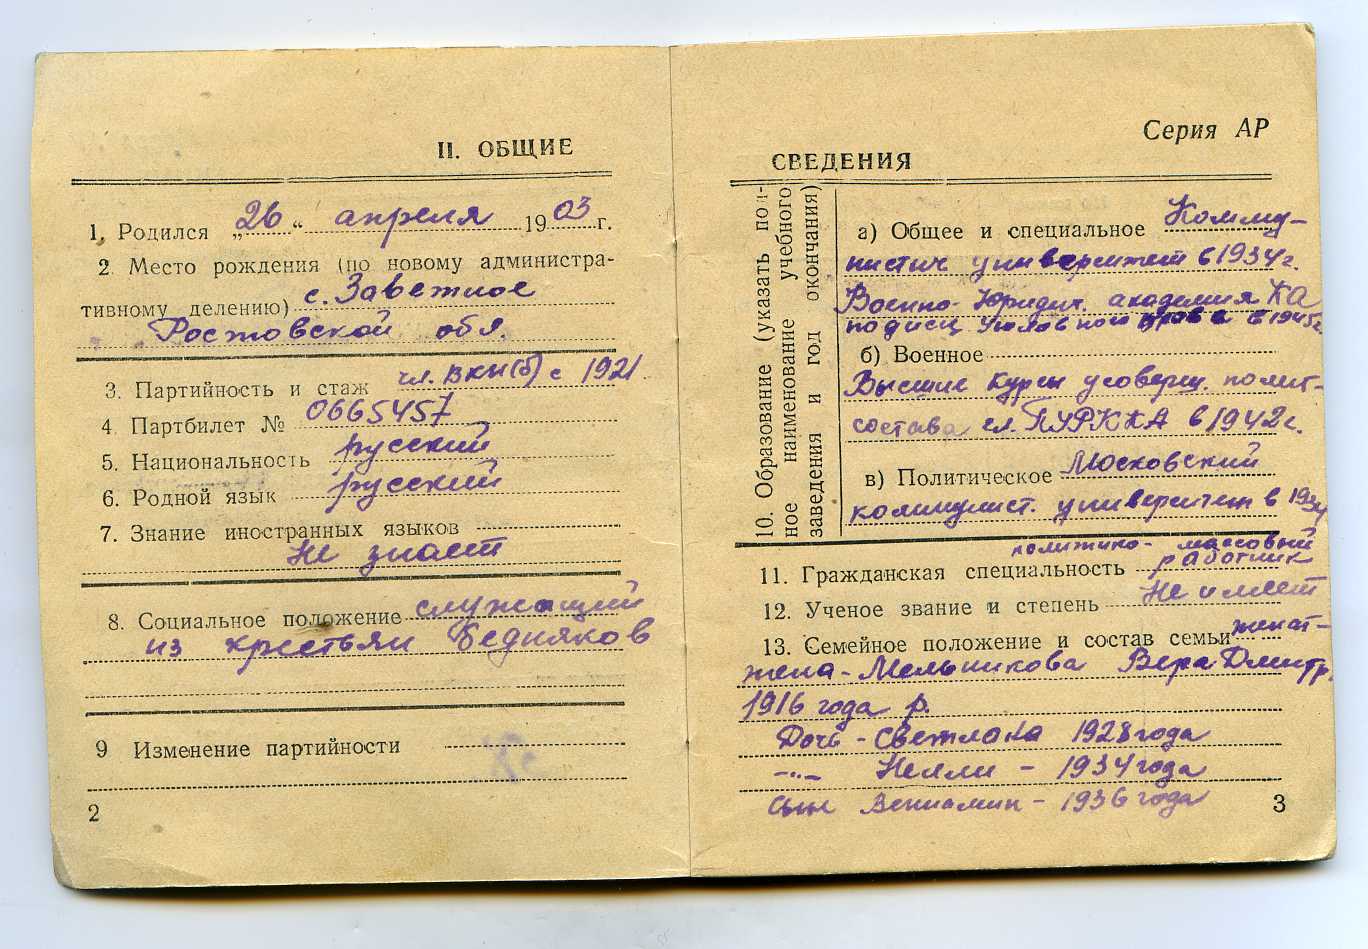 II. ОБЩИЕ
1. Родился „26“ апреля 1903 г.
2. Место рождения (по новому администра-
тивному делению) с. Заветное
Ростовской обл.
3. Партийность и стаж чл. ВКП(б) с 1921
4. Партбилет № 0665457
5. Национальность русский
6. Родной язык русский
7. Знание иностранных языков
Не знает
8. Социальное положение служащий
из крестьян бедняков
9 Изменение партийности
2
Серия АР
СВЕДЕНИЯ
10. Образование (указать пол-
ное наименование учебного
заведения и год окончания)
а) Общее и специальное Комму-
нистич университет в 1934 г.
Военно-Юридич. академия КА
по уголовного права в 1945 г
б) Военное
Высшие курсы усоверш. полит-
состава гл. ПУРККА в 1942 г.
в) Политическое Московский
коммунист. университет в 1934
11. Гражданская специальность политико-массовый
работник
12. Ученое звание и степень Не имеет
13. Семейное положение и состав семьи женат-
жена - Мельникова Вера Дмитр.
1916 года р.
Дочь - Светлана 1928 года
-"- Нелли - 1934 года
сын Вениамин - 1936 года
3